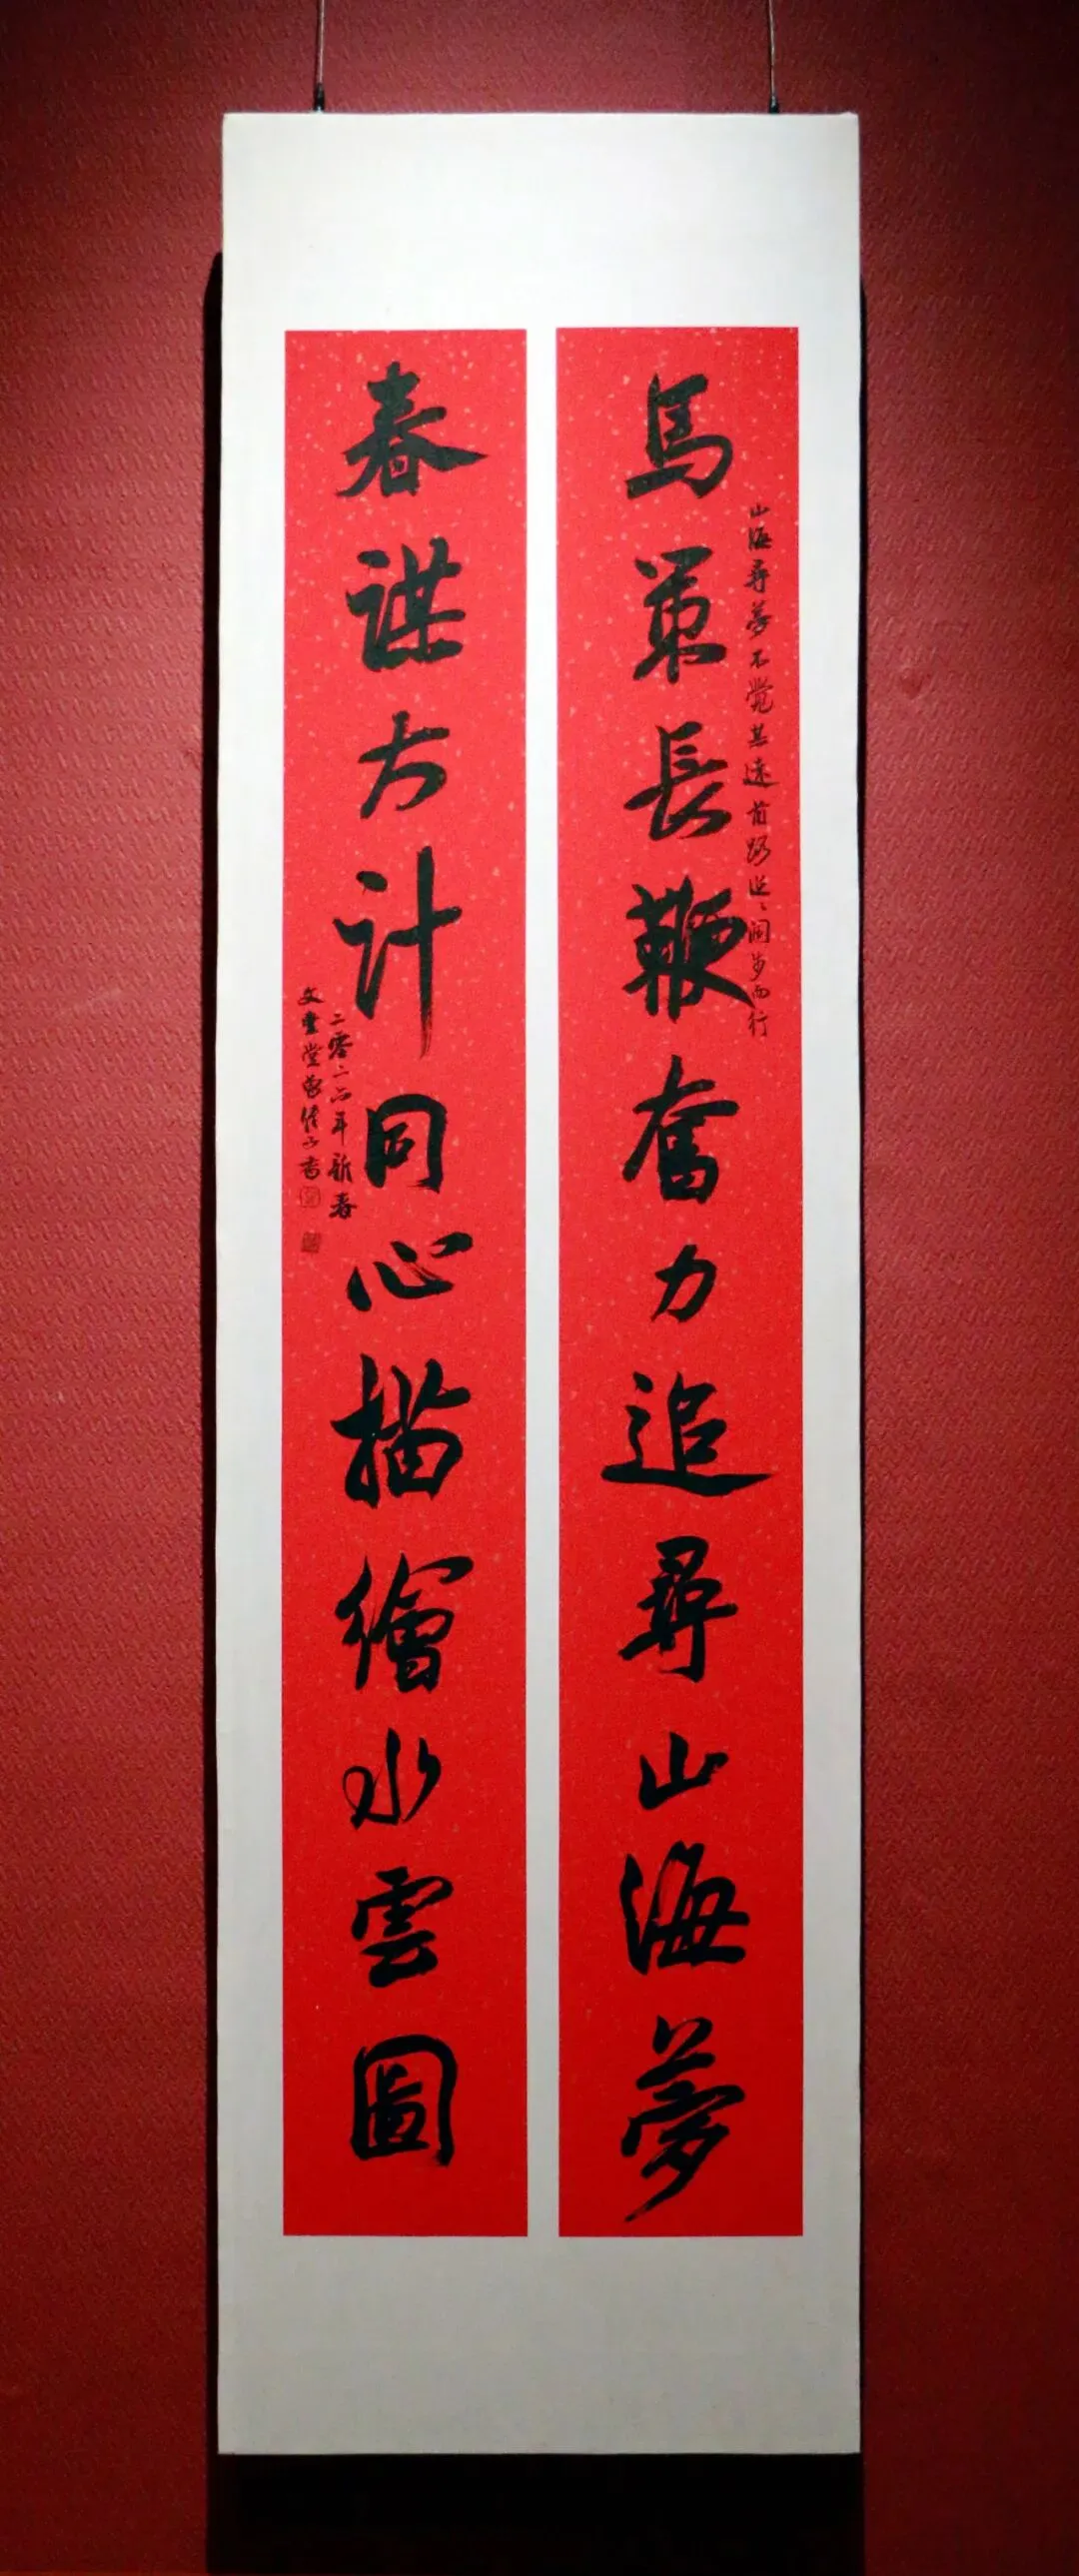 馬策長鞭奮力追尋山海夢
山海尋夢不覺其遠前路迢〻闊步而行
春謀大計同心描繪水雲圖
二零二六年新春
文豐堂